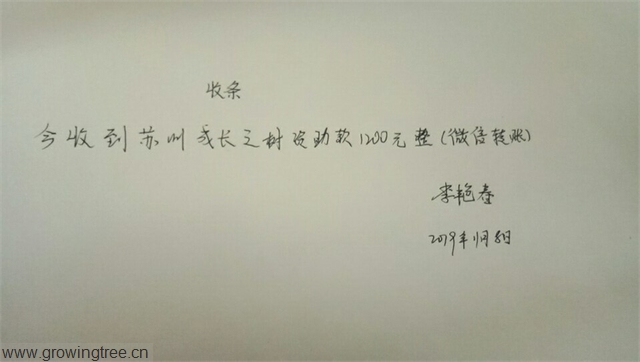 收条
今收到苏州成长之树资助款1200元整(微信转账)
李艳春
2019年1月8日
www.growingtree.cn